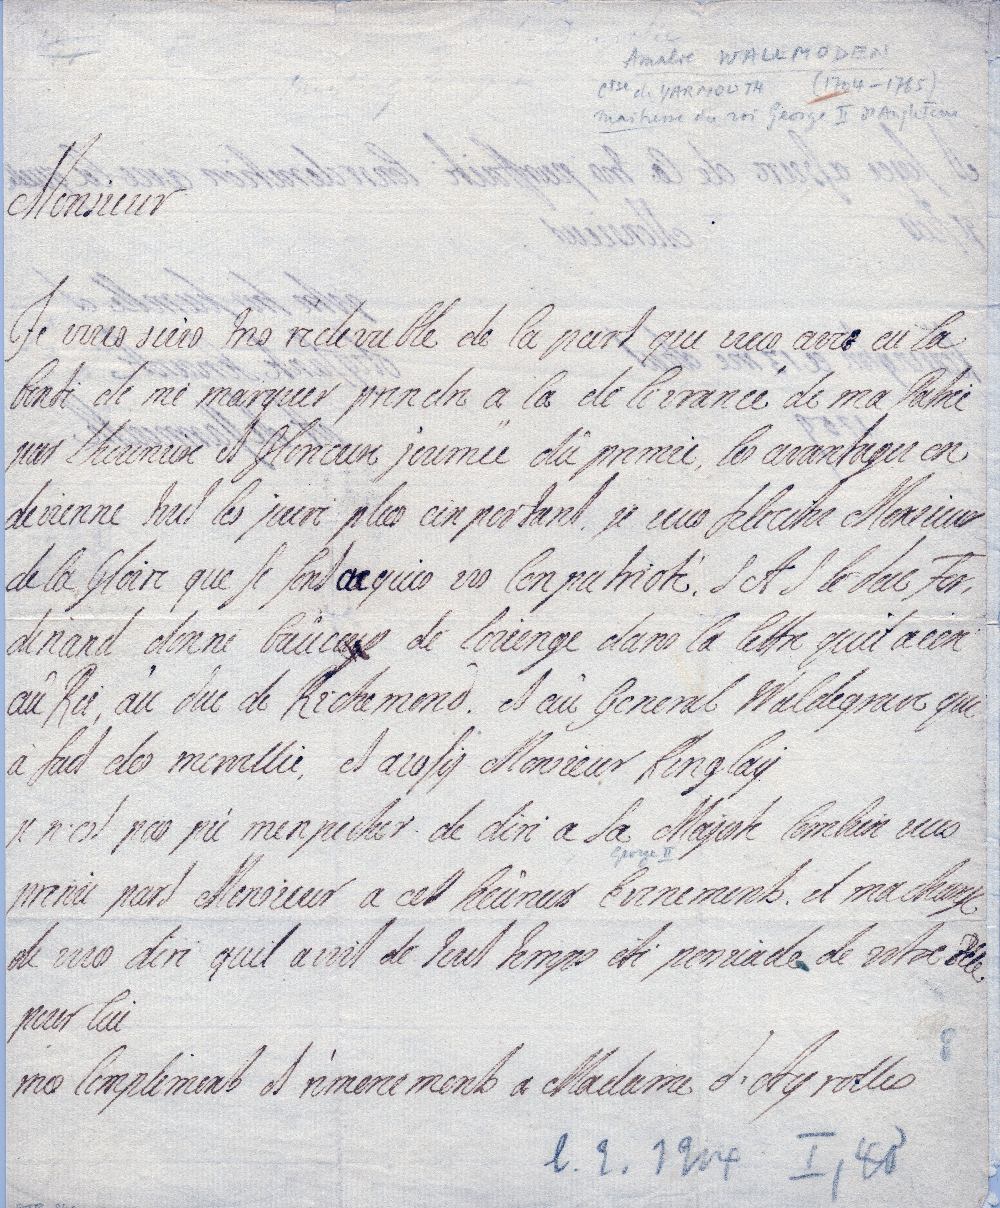 Amalie WALLMODEN
Ctsse de YARMOUTH (1704-1765)
maitresse du roi George II d'Angleterre
Monsieur
Je vous suis tres redevable de la part que vous avez eu la
bonté de me marquer prendre a la de de ma Patrie
par l'heureux et Glorieux journée du premié, les avantages en
devienne tous les jours plus important. je vous felicite Monsieur
de la Gloire que se sont acquies vos Conpatriote. S A S le duc Fer,
dinand donne baucoup de louenge dans la lettre quil a ecri
au Roi, au duc de Richemond. et au General Waldegrave que
a fait des mervellie, et aussy Monsieur Kenglay
je n'ai pas pu menpecher de dire a Sa Majeste Combien vous
George II
prenie part Monsieur a cet heureux Evenements. et ma charge
de vous dire quil avoit de tout temps eté persuade de votre Zele
pour lui
mes Complimens et remerciements a Madame d'Ayrolles
8
l. 2. 1904 I, 48